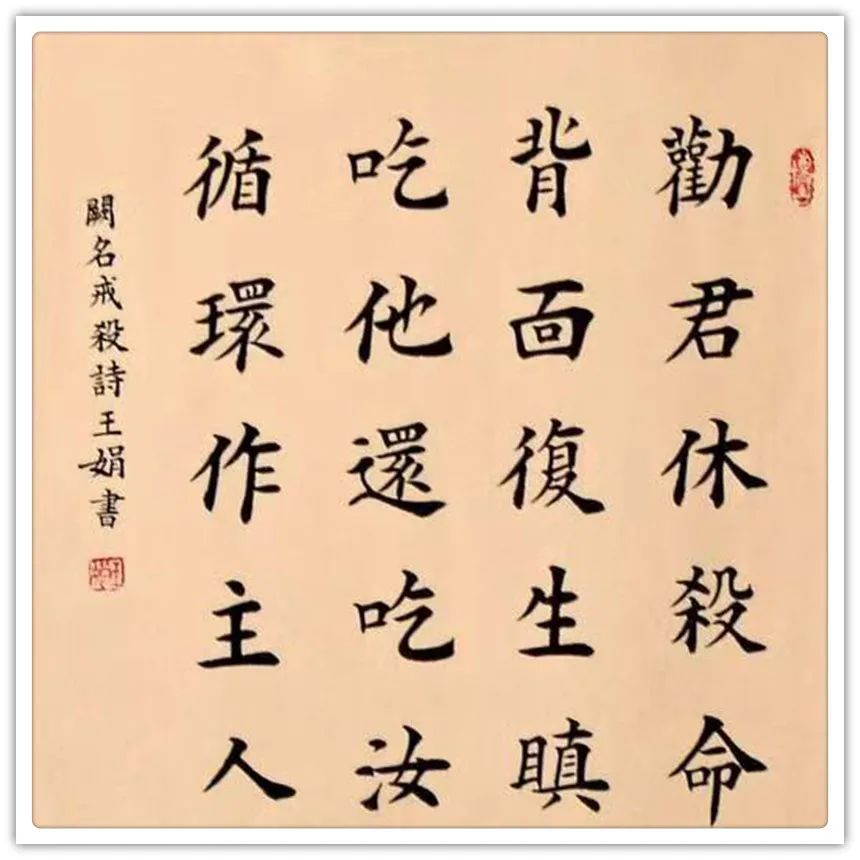 勸君休殺命
背面復生瞋
吃他還吃汝
循環作主人
闕名戒殺詩王娟書